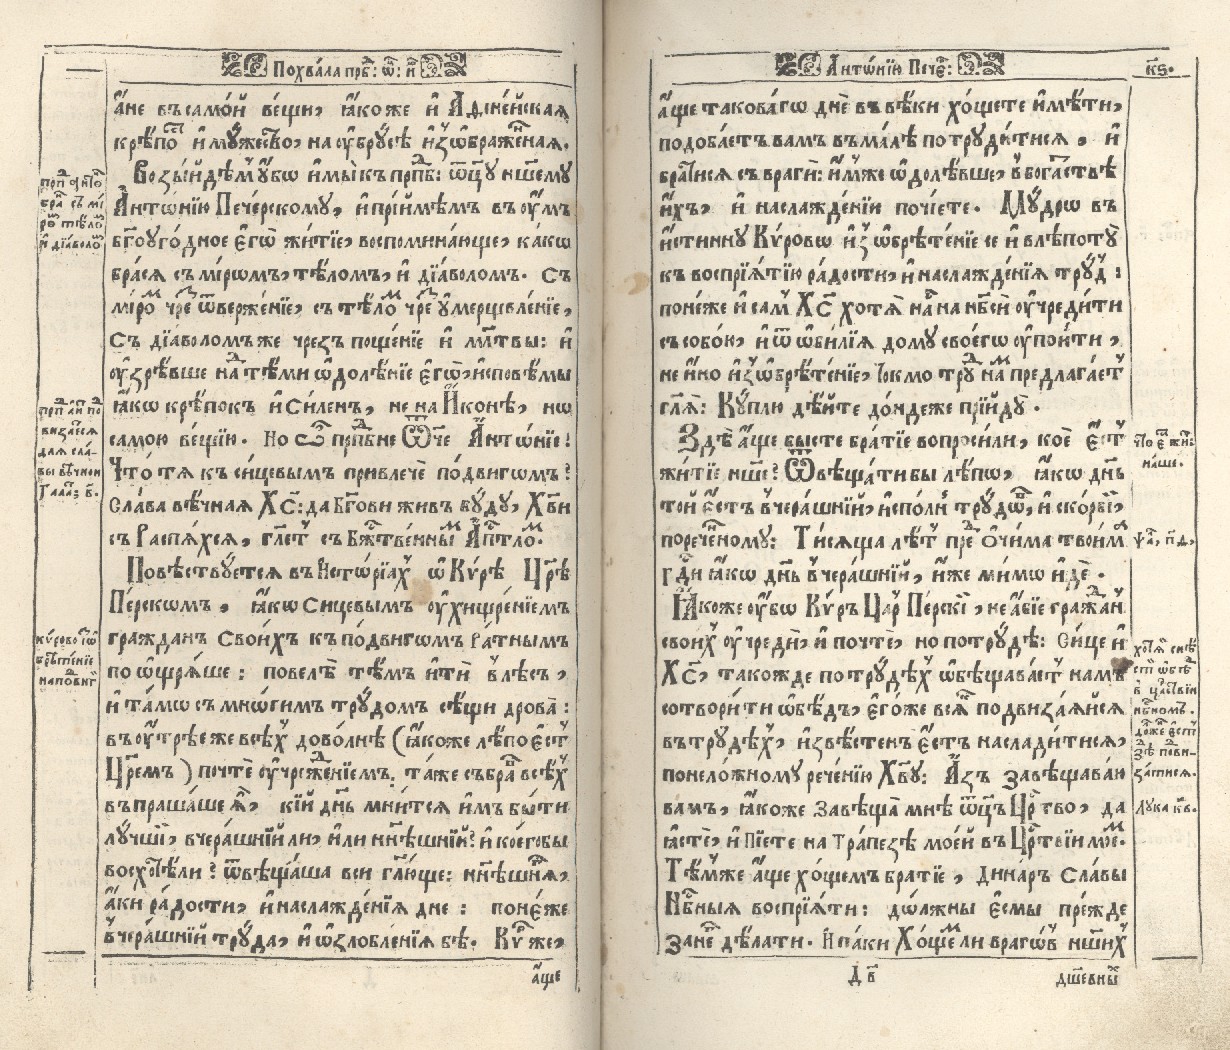 Похва́ла прⷣб: ѿ: н҃
а́не въ само́й ве́щи, ꙗ́коже и҆ Адѳне́йскаѧ
крѣ́пость и҆ мꙋ́жество, на ѹ҆брꙋ́сѣ и҆зѡбраже́ннаѧ.
Возы́йдѣмъ ᲂу҆́бѡ и҆ мы̀ къ прпⷣб: ѿцꙋ̀ нш҃емꙋ
А҆нтѡ́нїю Пече́рскомꙋ, и҆ прїи́мѣмъ въ ᲂу҆́мъ
бг҃оꙋго́дное є҆гѡ̀ житїѐ, воспомина́юще, ка́кѡ
бра́сѧ съ мі́ромъ, тѣ́ломъ, и҆ дїа́воломъ. Съ
мі́ромъ чре́зъ ѿверже́нїе, съ тѣ́ломъ чре́зъ ᲂу҆мерщвле́нїе,
Съ дїа́воломъ же чрезъ поще́нїе и҆ мл҃твы: и҆
ᲂу҆зрѣ́вше на́дъ тѣ́ми ѡ҆долѣ́нїе є҆гѡ̀, и҆сповѣ́мы
ꙗ҆́кѡ крѣ́покъ и҆ Си́ленъ, не на И҆ко́нѣ, нѡ
само́ю ве́щїю. Но Ѽ прпⷣбне Ѿч҃е А҆нтѡ́нїе!
Что́ тѧ къ си́цевымъ привлечѐ по́двигѡмъ?
Сла́ва вѣ́чнаѧ Хс҃: да Бг҃ови живъ бꙋ́дꙋ, Хв҃и
съ Распѧ́хсѧ, гл҃етъ съ Бж҃тве́ннымъ А҆пⷭ҇толомъ.
Повѣствꙋ́етсѧ въ Исто́рїахъ ѡ҆ Кѵ́рѣ Цр҃ѣ
Пе́рскомъ, ꙗ҆́кѡ си́цевымъ ᲂу҆хищре́нїемъ
гра́жданъ свои́хъ къ по́двигѡмъ ра́тнымъ
поѡщрѧ́ше: повелѣ̀ тѣ́мъ и҆тѝ в̾лѣ́съ,
и҆ та́мѡ съ мнѡ́гимъ трꙋдо́мъ сѣщѝ дрова̀:
въ ᲂу҆́трѣе же всѣ́хъ дово́лнѣ (ꙗ҆́коже лѣ́по є҆́стъ
Цр҃е́мъ) почтѐ ᲂу҆чрежде́нїемъ. та́же събра́въ всѣ́хъ
въпраша́ше ѧ҆̀, кі́й дн҃ь мни́тсѧ и҆́мъ бы́ти
лꙋ́чшїй, вчера́шнїй ли, и҆́ли нн҃ѣшнїй? и҆ коегѡ бы
восхотѣ́ли? ѿвѣща́ша вси гл҃юще: нн҃ѣшнѧѧ,
а҆́ки ра́дости, и҆ наслажде́нїѧ дне: поне́же
вчера́шнїй трꙋда̀, и҆ ѡ҆злобле́нїѧ бѣ̀. Кѵ́ръ же,
а҆́ще
прпⷣб
бра́ съ мі́
ро тѣ́ло
и҆ дїа́воло
по
виза́есѧ
дла сла́
вы вѣ́чной
Гала: в҃.
Кѵ́рово и҆ѡ
брѣ́тенїе
на по́двиг
А҆нтѡ́нїю Пече́р:
к҃ѕ.
а҆́ще такова́гѡ днѐ въ вѣ́ки хо́щете и҆мѣ́ти,
подоба́етъ вамъ въ ма́лѣ потрꙋди́тисѧ, и҆
бра́тисѧ съ враги̑: и҆́мже ѡ҆долѣ́вше, в бога́ствѣ
и҆́хъ, и҆ наслажде́нїи почі́ете. Мꙋ́дрѡ въ
и҆́стиннꙋ Кѵ́ровѡ и҆зѡбрѣте́нїе се и҆ в̾лѣ́потꙋ
къ воспрїѧ́тїю ра́дости, и҆ наслажде́нїѧ трꙋ́дъ:
поне́же и҆ са́мъ Хс҃ хотѧ̀ на́съ на нб҃сѝ ᲂу҆чреди́ти
съ собо́ю, и҆ ѿ ѡ҆би́лїѧ домꙋ̀ своегѡ̀ ᲂу҆пои́ти,
не и҆́но и҆зѡбрѣте́нїе, то́кмо трꙋ́дъ на́мъ предлага́етъ
гл҃ѧ: Кꙋ́плю дѣ́йте до́ндеже прїидꙋ̀.
Здѐ а҆́ще бы́сте бра́тїе вопроси́ли, коѐ є҆́стъ
житїѐ нш҃е? Ѿвѣща́ти бы лѣ́пѡ, ꙗ҆́кѡ дн҃ь
то́й є҆́стъ вчера́шнїй, и҆спо́лнь трꙋдѡ́въ, и҆ ско́рбїй,
порече́нномꙋ: Ти́сѧща лѣ́тъ пре́дъ о҆чи́ма твои́ма
гдⷭ҇и ꙗ҆́кѡ дн҃ь вчера́шнїй, и҆́же ми́мѡ и҆́де.
Ꙗ҆́коже ᲂу҆́бѡ Кѵ́ръ Ца́рь Пе́рскїй, не а҆́бїе гра́жданъ
свои́хъ ᲂу҆чредѝ, и҆ почтѐ, но по трꙋдѣ̀: Си́це и҆
Хс҃, та́кожде по трꙋдѣ́хъ ѡ҆бѣщава́етъ намъ
сотвори́ти ѡ҆бѣ́дъ, є҆гѡ́же всѧ́къ подвиза́ѧйсѧ
въ трꙋдѣ́хъ, и҆звѣ́стенъ є҆́стъ наслади́тисѧ,
по нело́жномꙋ рече́нїю Хв҃ꙋ: А҆́зъ завѣщава́ю
ва́мъ, ꙗ҆́коже завѣща̀ мнѣ̀ ѿц҃ъ Цр҃тво, да
ꙗ҆́стѐ, и҆ Пїе́те на Тра́пезѣ мое́й въ Цр҃твїи мое́мъ.
Тѣ́мже а҆́ще хо́щемъ бра́тїе, Дина́ръ Сла́вы
Нбⷭ҇ныѧ воспрїѧ́ти: до́лжны є҆смы̀ пре́жде
зане́ дѣ́лати. И҆ па́ки Хо́щемъ ли врагѡ́въ нш҃ихъ
Д в҃
дш҃е́вны
Что̀ є҆́ жи:
на́ше.
Ѱа, п҃д,
хотѧ́ снѣ́
сти ѡ҆бѣ́
в цр҃ствїи
нб҃номъ.
до́лже є҆́стъ
здѣ̀ подви-
за́тисѧ.
Лꙋка к҃в.